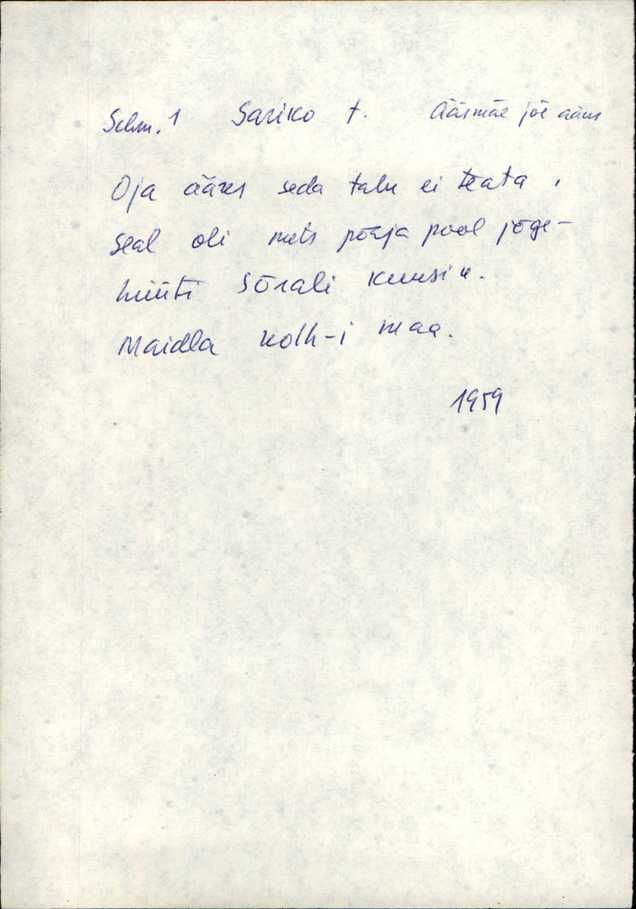 Schm. 1 Sariko t. Ääsmäe jõe ääres
Oja ääres seda talu ei teata,
Seal oli mets põhja pool jõge-
hüüti Sõrali kuusik.
Maidla kolh-i maa.
1959